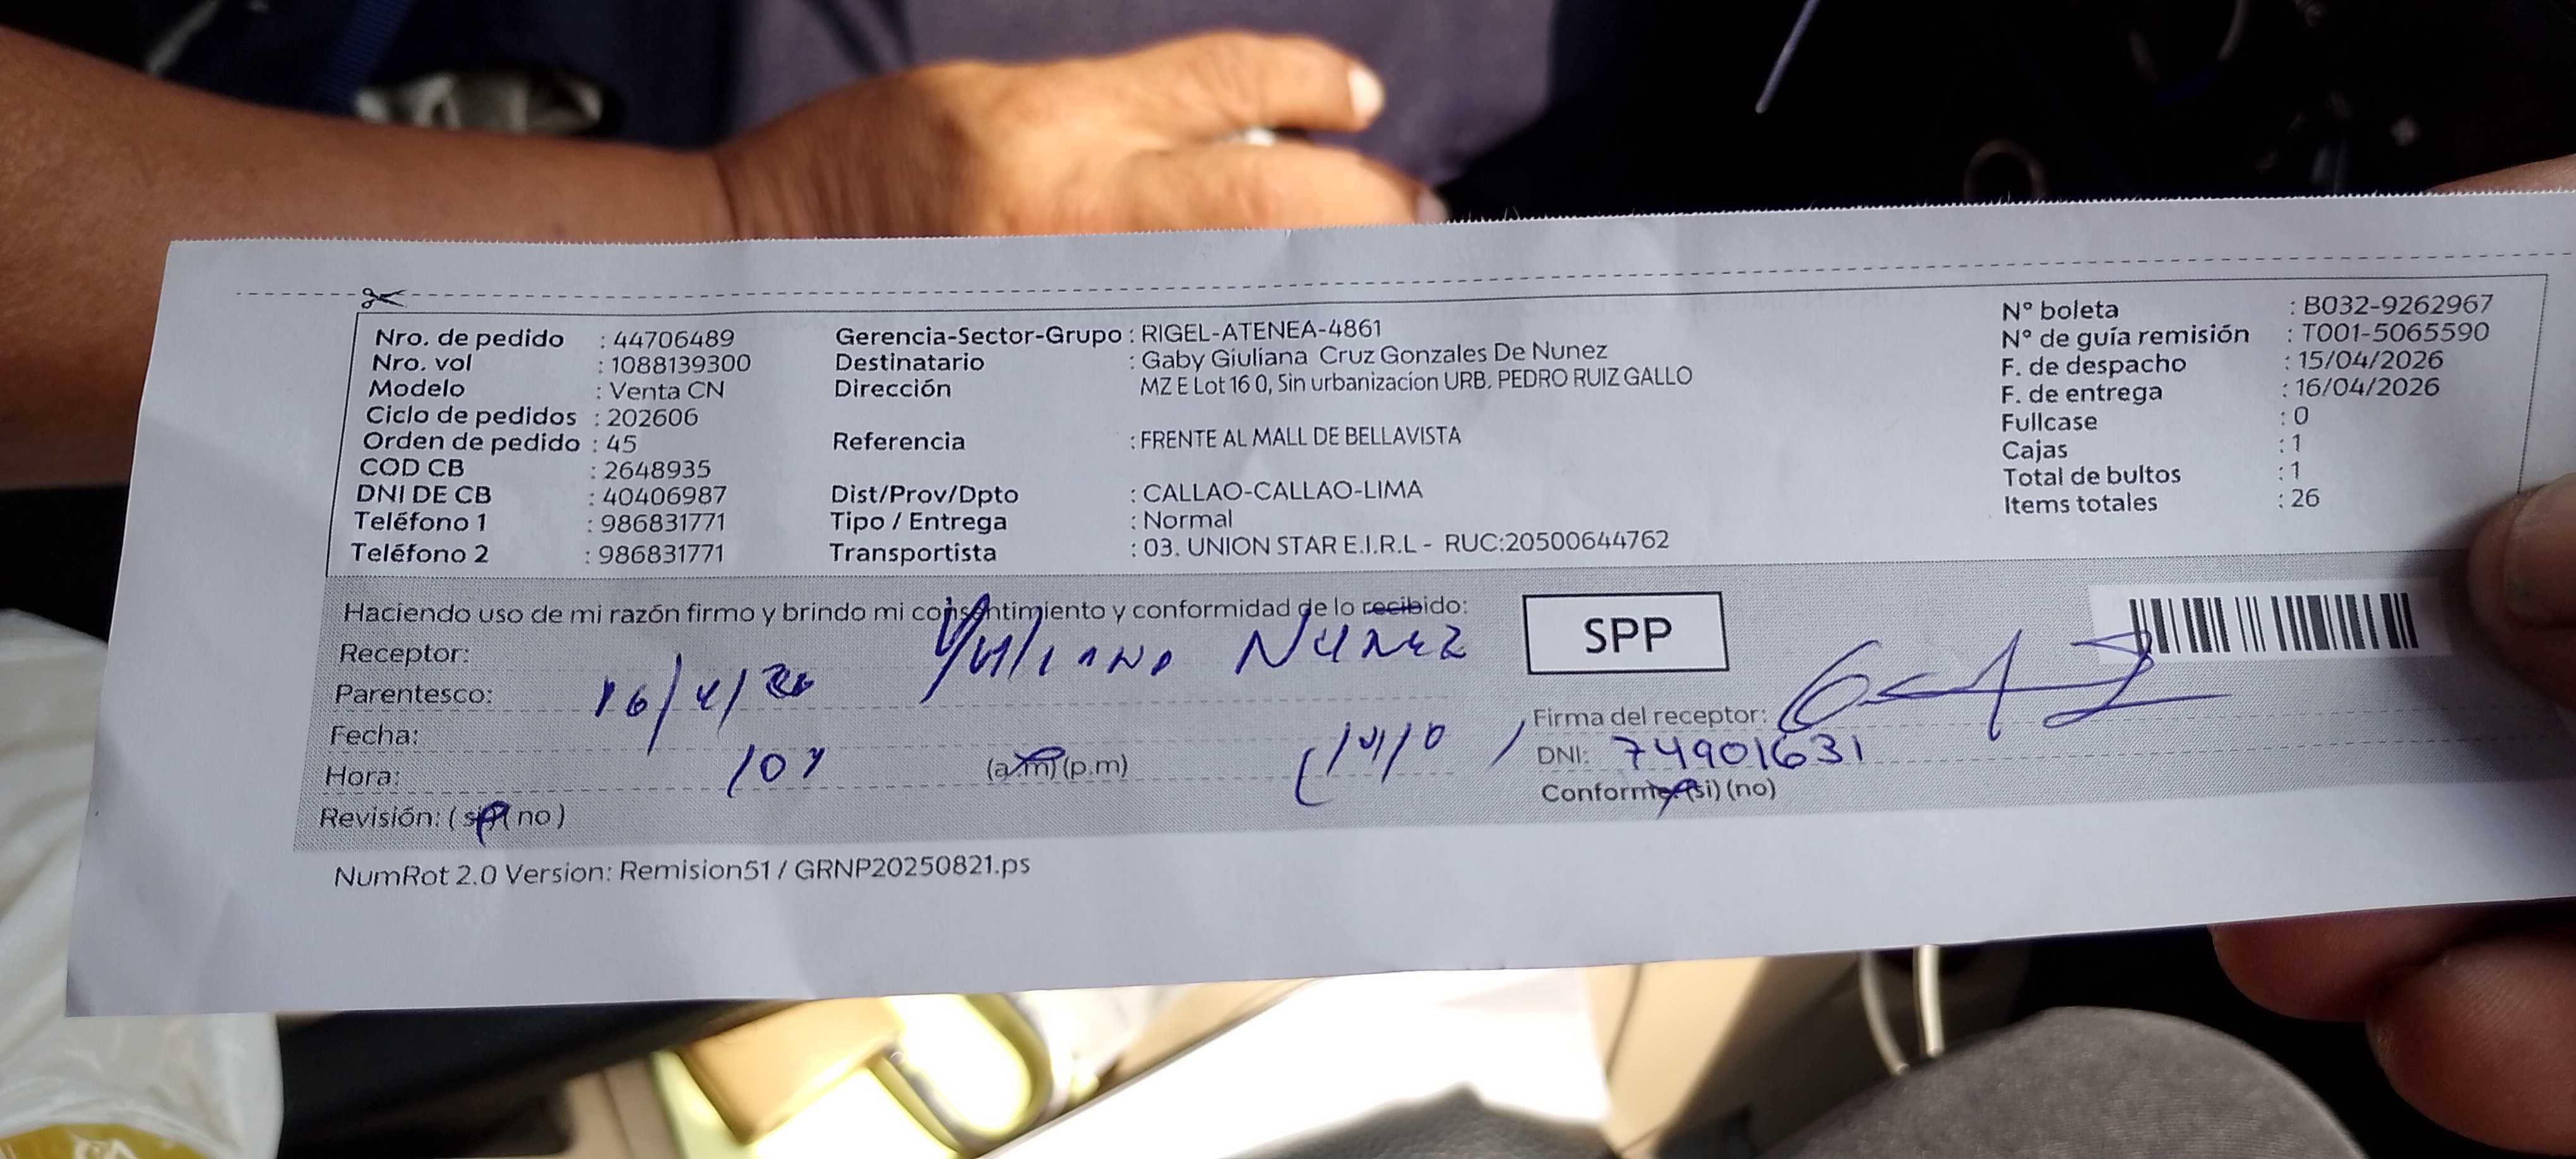 Nro. de pedido : 44706489
Nro. vol : 1088139300
Modelo : Venta CN
Ciclo de pedidos : 202606
Orden de pedido : 45
COD CB : 2648935
DNI DE CB : 40406987
Teléfono 1 : 986831771
Teléfono 2 : 986831771
Gerencia-Sector-Grupo : RIGEL-ATENEA-4861
Destinatario : Gaby Giuliana Cruz Gonzales De Nunez
Dirección MZ E Lot 16 0, Sin urbanizacíon URB. PEDRO RUIZ GALLO
Referencia : FRENTE AL MALL DE BELLAVISTA
Dist/Prov/Dpto : CALLAO-CALLAO-LIMA
Tipo / Entrega : Normal
Transportista : 03. UNION STAR E.I.R.L - RUC:20500644762
Nº boleta : B032-9262967
Nº de guía remisión : T001-5065590
F. de despacho : 15/04/2026
F. de entrega : 16/04/2026
Fullcase : 0
Cajas : 1
Total de bultos : 1
Items totales : 26
Haciendo uso de mi razón firmo y brindo mi consentimiento y conformidad de lo recibido:
Receptor: Nuñez
Parentesco: 16/4/26
Fecha:
Hora: (a.m) (p.m)
Revisión: ( si ) ( no )
SPP
Firma del receptor:
DNI: 74901631
Conforme: (si) (no)
NumRot 2.0 Version: Remision51 / GRNP20250821.ps